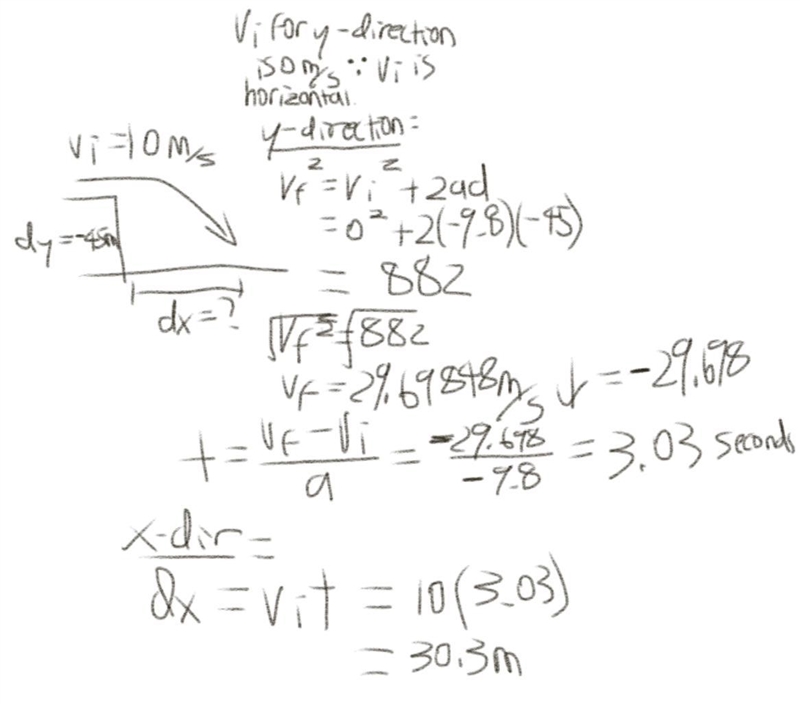 Vi for y-direction
is 0 m/s ∵ Vi is
horizontal
y-direction:
Vi = 10 m/s
Vf² = Vi² + 2ad
= 0² + 2(-9.8)(-45)
dy = -45m
= 882
dx = ?
√Vf² = √882
Vf = 29.69848 m/s ↓ = -29.698
t = (Vf - Vi)/a = -29.698/-9.8 = 3.03 seconds
x-dir =
dx = Vit = 10(3.03)
= 30.3m